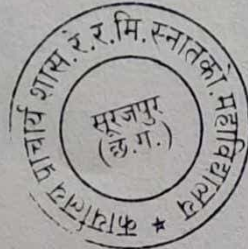 कार्यालय प्राचार्य शास. रे. र. मि. स्नातको. महाविद्यालय
सूरजपुर
(छ.ग.)